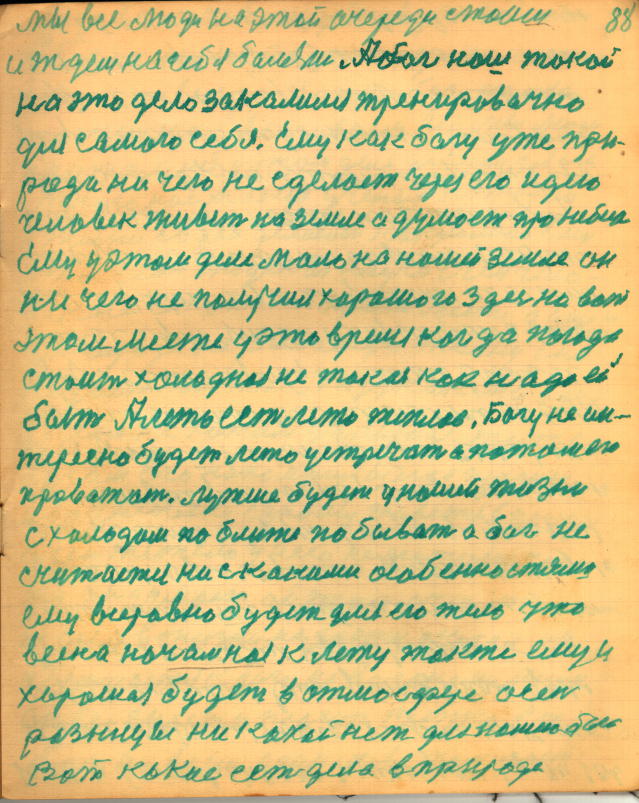 88
мы все люди на этой очереди стоим
и ждем на себя болезни. А бог наш такой
на это дело закалился тренировачно
для самого себя. Ему как богу уже при-
рода ни чего не сделает через его идею
человек живет на земле а думает про небо
Ему у этом деле мало на нашей земле он
ни чего не получил харошого здесь на вот
этом месте у это время когда погода
стоит холодная не такая как надо ей
быт А лето ест лето теплое. Богу не ин-
тересно будет лето устречат а потом его
праважат. Лучше будет у нашей жизни
с холодом по ближе побыват а бог не
считается ни с какими особенностями
ему всеравно будет для его тело что
весна начальная к лету также ему и
хорошая будет в атмосфере очен
разницы ни какой нет для нашего бога
Вот какие ест дела в природе